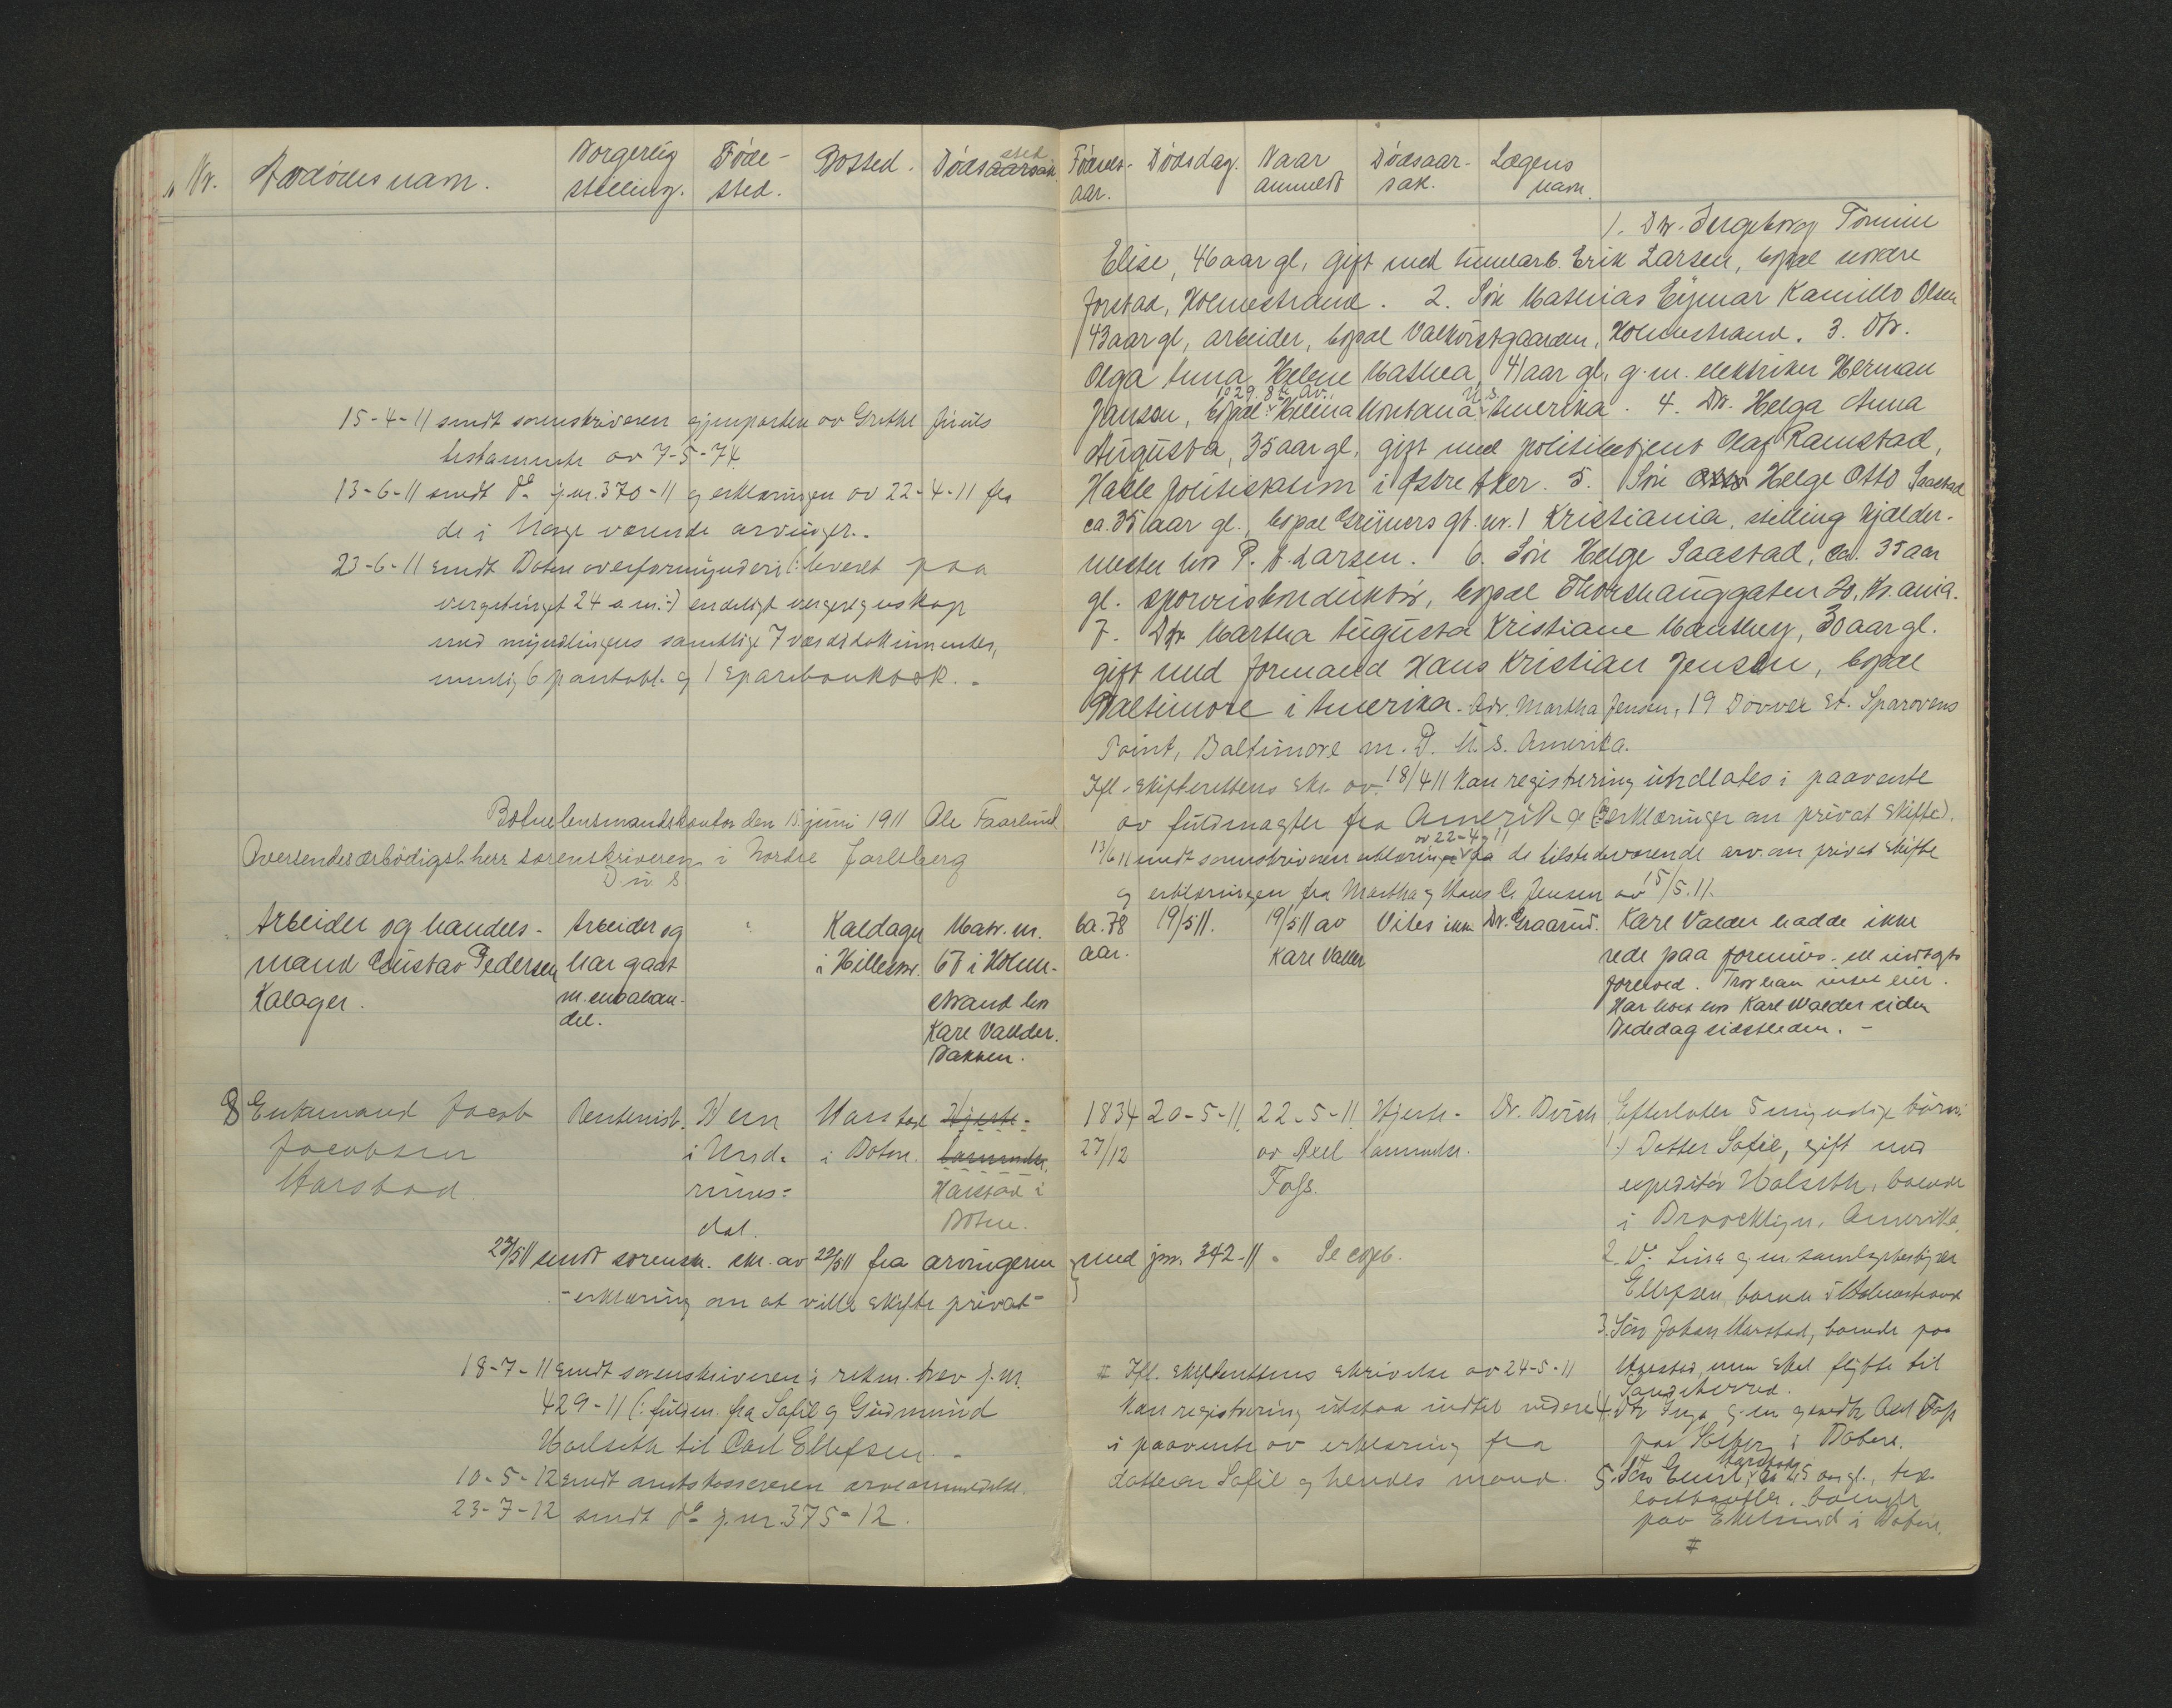 Nr.
Avdødes navn.
Borgerlig stilling.
Føde-sted.
Bosted.
Dødsaarsak sted
15-4-11 sendt sorenskriveren gjenparten av Grethe
testamente av 7-5-74.
13-6-11 sendt do j.nr. 370-11 og erklæringen av 22-4-11 fra
de i Norge værende arvinger.
23-6-11 sendt Botne overformynderi (: leveret paa
vergetinget 24 s.m. :) endeligt vergeregnskap
med myndlingens samtlige 7 værdidokumenter,
nemlig 6 pantobl. og 1 sparebankbok.
Botne lensmandskontor den 15 juni 1911 Ole Faarlund
Oversendes ærbødigst herr sorenskriveren i Nordre Jarlsberg
D.u.s.
Arbeider og handels-
mand Gustav Pedersen
Kalager.
Arbeider og
har gaat
m.
del.
Kaldager
i Hillestad.
Matr. nr.
67 i Holme-
strand hos
Karl Valder.
Bakken.
8 Enkemand Jacob
Jacobsen
Harstad.
Rentenist.
Hem
i Nord-
rums-
dal.
Harstad
i Botne.
Hjerte-
lammelse.
Harstad i
Botne.
23/5 11 sendt sorensk. skr. av 22/5 11 fra arvingerne
- erklæring om at ville skifte privat -
18-7-11 sendt sorenskriveren i rekm. brev j.nr.
429-11 (: fuldm. fra Sofie og Gudmund
Halseth til Carl Ellefsen.
10-5-12 sendt amtskassereren arveanmeldelse.
23-7-12 sendt do j.nr. 375-12.
Fødsels-aar.
Dødsdag.
Naar anmeldt
Dødsaar-sak.
Lægens navn.
1. Dtr. Ingeborg Tomine
Elise, 46 aar gl, gift med tømmerarb. Erik Larsen, bopæl nordre
Jorstad, Holmestrand. 2. Søn Mathias Ejmar Kamillo Olsen
43 aar gl, arbeider, bopæl Holmestrand. 3. Dtr.
Olga Anna Helene Mathea, 41 aar gl, g.m. elektriker Herman
1029. 8th Av. U.S.
Jansen, bopæl Helena Montana Amerika. 4. Dtr. Helga Anna
Augusta, 35 aar gl, gift med politibetjent Olaf Ramstad,
Hasle politistation i Østre Aker. 5. Søn Otto Helge Otto Saastad
ca. 35 aar gl., bopæl Grüners gt. nr. 1 Kristiania, stilling kjælder-
mester hos P. A. Larsen. 6. Søn Helge Saastad, ca. 35 aar
gl. sporveiskonduktør, bopæl Thorshauggaten 20, Kr.ania.
7. Dtr. Martha Augusta Kristiane Manthey, 30 aar gl.
gift med formand Hans Kristian Jensen, bopæl
Baltimore i Amerika. Adr. Martha Jensen, 19 Dovver St. Sparovens
Point, Baltimore M.D. U.S. Amerika.
Ifl. skifterettens skr. av 18/4 11 kan registrering undlates i paavente
av fuldmagter fra Amerika (& erklæringer om privat skifte).
av 22-4-11
13/6 11 sendt sorenskriveren erklæringe fra de tilstedeværende arv. om privat skifte
og erklæringen fra Martha og Hans C. Jensen av 15/5.11.
Ca. 78
aar.
19/5 11.
19/5 11 av
Karl Valder
Vites ikke
Dr. Graarud.
Karl Valder hadde ikke
rede paa formues- ell indtægts
forhold. Tror han intet eier.
Har bod hos Karl Walder siden
Bededag sidstleden. -
1834
27/12
20-5-11.
22-5-11
av Axel
Foss.
Hjerte-
lammelse.
Dr. Birch
Efterlater 5 myndige børn:
1) Datter Sofie, gift med
expeditør Halseth, boende
i Broocklyn, Amerika.
med jnr. 342-11. Se copb.
2. Do. Lina g.m.
Ellefsen, boende i Holmestrand
3. Søn Johan Harstad, boende paa
Harstad, men skal flytte til
Sandeherred.
4. Dtr Inga g.m. Axel Foss
paa Solberg i Botne.
Harstad
5. Søn Emil, ca 25 aar gl.,
boende
paa Ekelund i Botne.
#
# Ifl. skifterettens skrivelse av 24-5-11
kan registrering utstaa indtil videre
i paavente av erklæring fra
datteren Sofie og hendes mand.